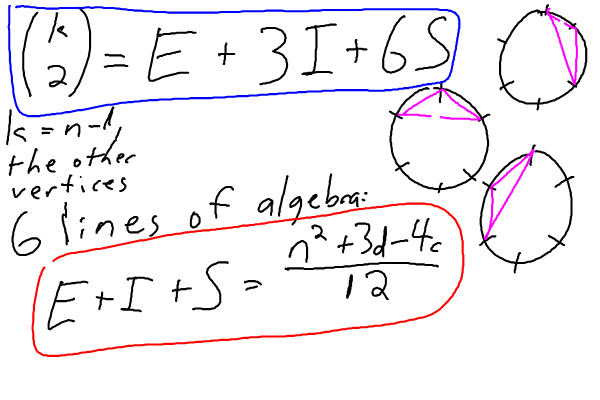 (k 2) = E + 3I + 6S
k = n-1,
the other
vertices
6 lines of algebra:
E + I + S = n² + 3d - 4c / 12